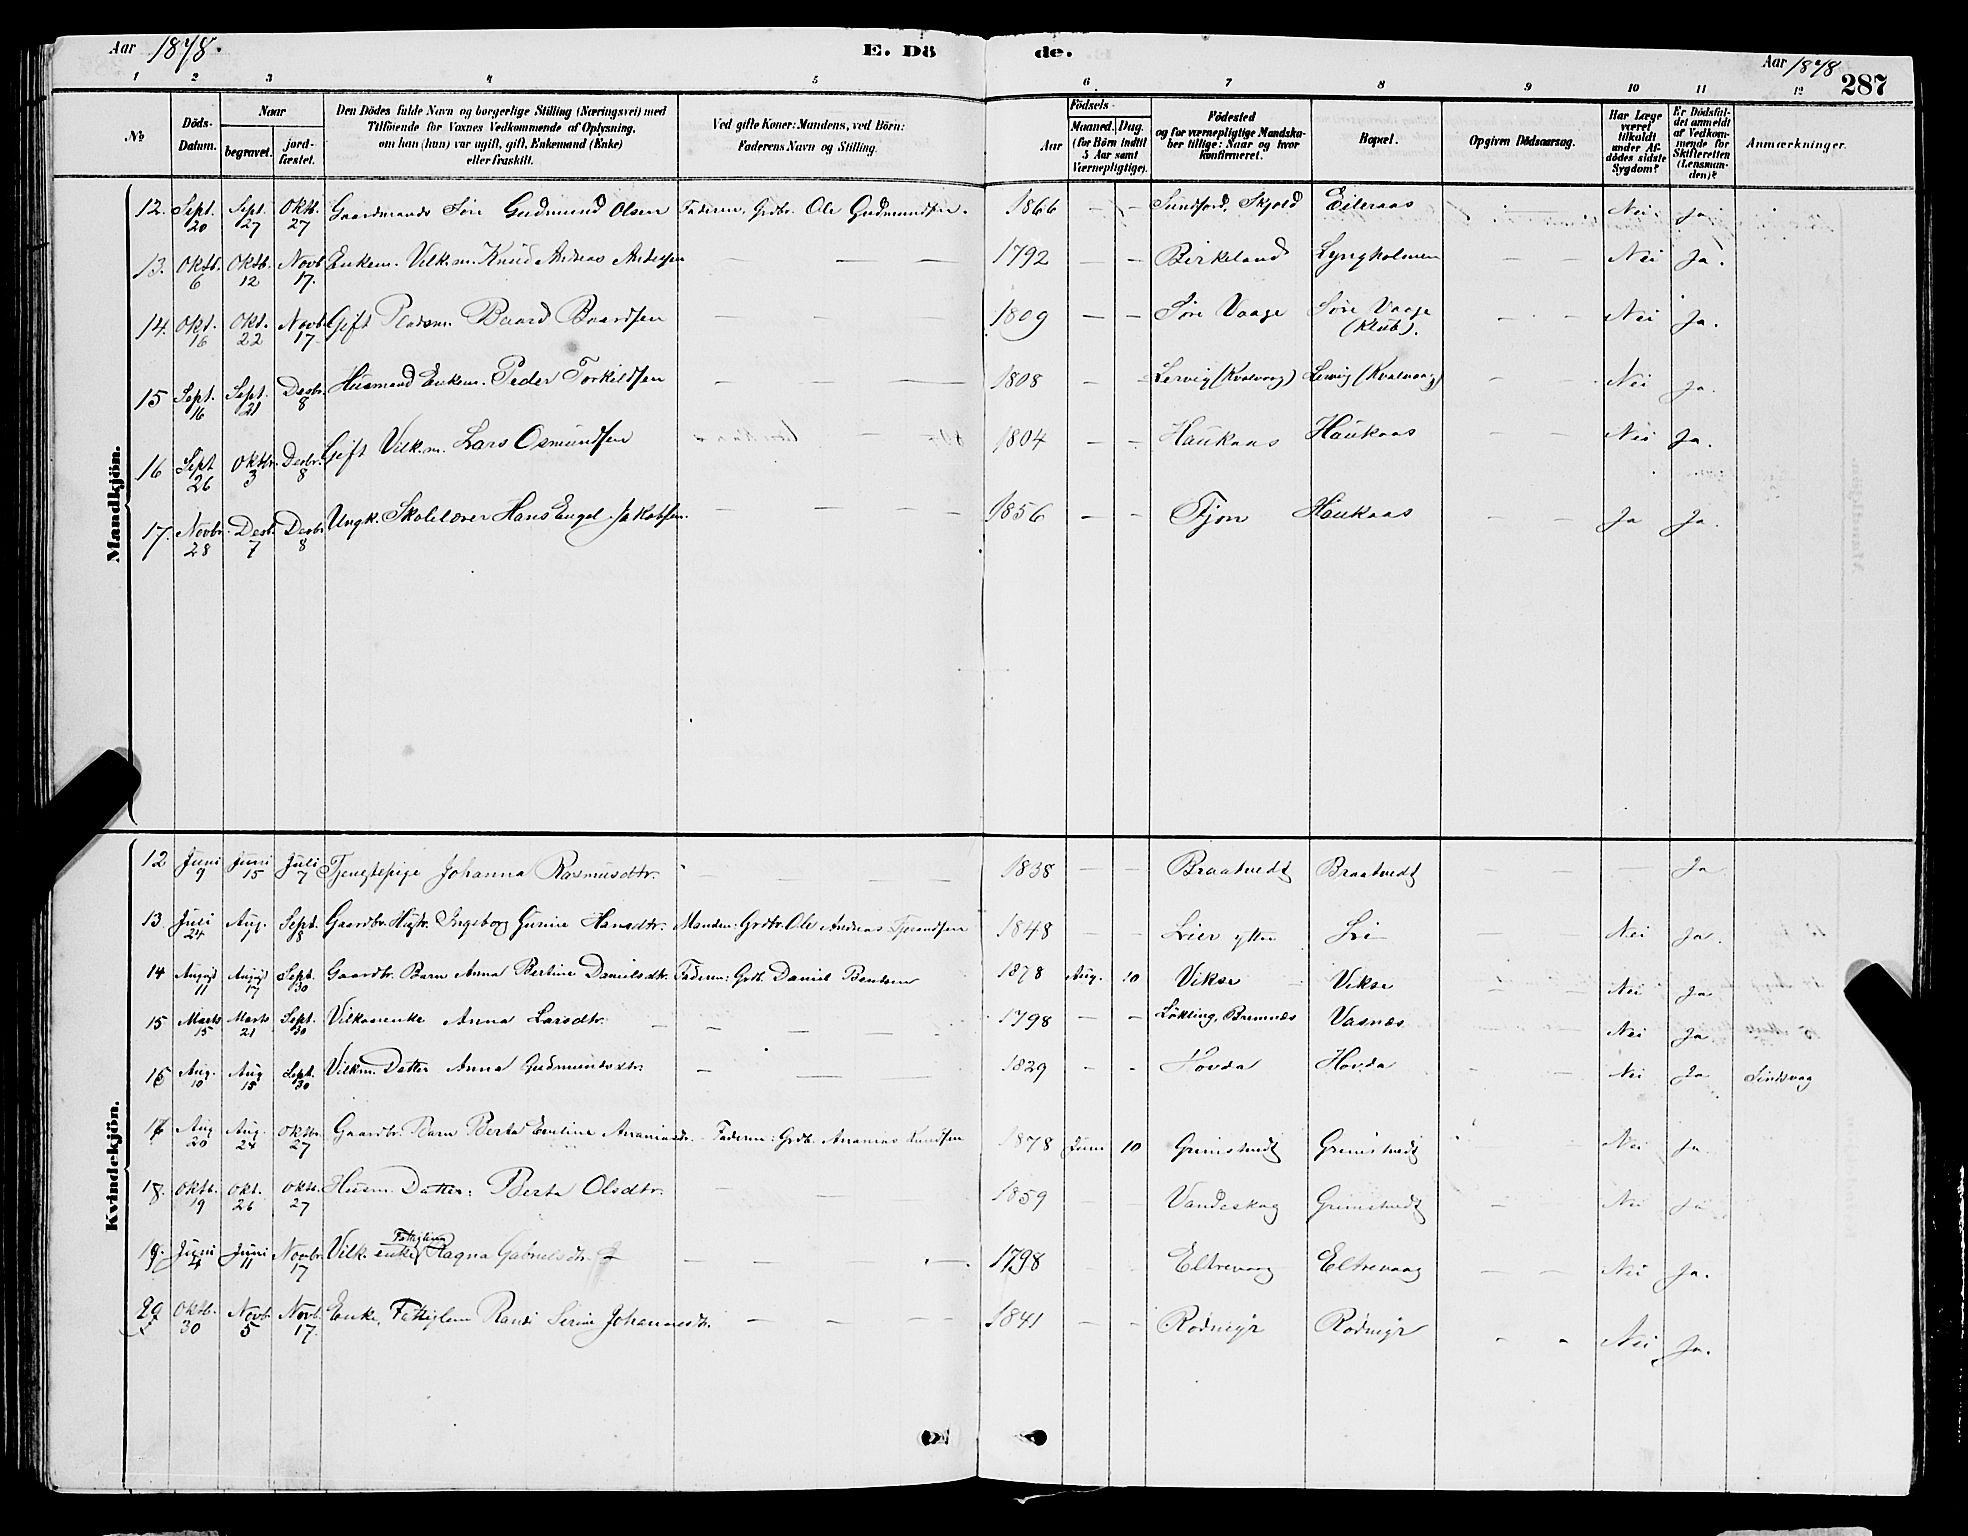 Aar 1878. E. Dö de. Aar 1878 287
1 2 3 4 5 6 7 8 9 10 11 12
№ Döds-Datum. Naar begravet. jordfæstet. Den Dödes fulde Navn og borgerlige Stilling (Næringsvei) med Tilföiende for Voxnes Vedkommende af Oplysning, om han (hun) var ugift, gift, Enkemand (Enke) eller fraskilt. Ved gifte Koner: Mandens, ved Börn: Faderens Navn og Stilling. Födsels- Aar Maaned. Dag. (for Börn indtil 5 Aar samt Værnepligtige). Födested og for værnepligtige Mandskaber tillige: Naar og hvor konfirmeret. Bopæl. Opgiven Dödsaarsag. Har Læge været tilkaldt under Afdödes sidste Sygdom? Er Dödsfaldet anmeldt af Vedkommende for Skifteretten (Lensmanden)? Anmærkninger.
Mandkjön.
12. Sept. 20 Sept. 27 Oktb. 27 Gaardmands Sön Gudmund Olsen Faderen, Grdbr. Ole Gudmundsen. 1866 - - Sundford, Skjold Eileraas - Nei Ja
13. Oktb. 6 Oktb. 12 Novb. 17. Enkem. Vilk.m. Knud Andreas Andersen — — — 1792 - - Birkeland Lyngholmen - - Nei Ja.
14. Okt. 16 Okt. 22 Novb. 17. Gift Pladsm. Baard Baardsen — — — 1809 - - Söre Vaage Söre Vaage (Klub). - - Nei Ja.
15 Sept. 16 Sept. 21 Decbr. 8 Husmand Enkem. Peder Torkildsen — — — 1808 - - Lervig (Kvalvaag) Lervig (Kvalvaag) - - Nei Ja.
16 Sept 26 Oktbr. 3 Decbr. 8 Gift Vilk.m. Lars Osmundsen — 1804 - - Haukaas Haukaas - - Nei Ja.
17. Novbr. 28 Decb. 7 Decbr. 8 Ungk. Skolelærer Hans Engel Jakobsen. — — — 1856 - - Fjon Haukaas - - Ja Ja.
Kvindekjön.
12 Juni 9 Juni 15 Juli 7 Tjenestepige Johanna Rasmusdtr. — — — 1838 - - Braatvedt Braatvedt - - — Ja
13 Juli 24 Aug. 1 Sept. 8 Gaardbr. Hustr. Ingeborg Gurine Hansdtr. Manden: Grdbr. Ole Andreas 1848 - - Lier ytre Li - - Nei Ja.
14 August 11 August 17 Sept. 30 Gaardbr. Barn Anna Bertine Danielsdtr. Faderen: Grdb. Daniel Bentsen 1878 Aug. 10 Vikse Vikse - - Nei Ja
15 Marts 15 Marts 21 Sept. 30 Vilkaarenke Anna Larsdtr. — — — 1798 - - Lökling, Bremnæs Vasnæs Nei Ja
16 Aug. 10 Aug 15 Sept. 30 Vilkm. Datter Anna Gudmundsdtr. — — — 1829 - - Hovda Hovda Nei Ja
17 Aug 20 Aug. 24 Oktbr. 27 Gaardbr. Barn Berta Eveline Faderen: Grdb. Ananias Knudsen 1878 Juni 10 Grimstvedt Grimstvedt - Nei Ja
18. Oktb. 19 Okt. 26 Oktb. 27 Husm. Datter: Berta Olsdtr. — — 1859 - - Vandeskog Grimstvedt - Nei Ja
19. Juni 4 Juni 11 Novbr. 17 Vilk. enke, Fattiglem Ragna Gabrielsdtr. — — — 1798 - - Eltrevaag Eltrevaag - - Nei Ja.
20 Oktb. 30 Novb. 5 Novb. 17. Enke, Fattiglem Randi Serine Johannesdtr. — — — 1841 - - Rødmyr Rødmyr - - Nei Ja.